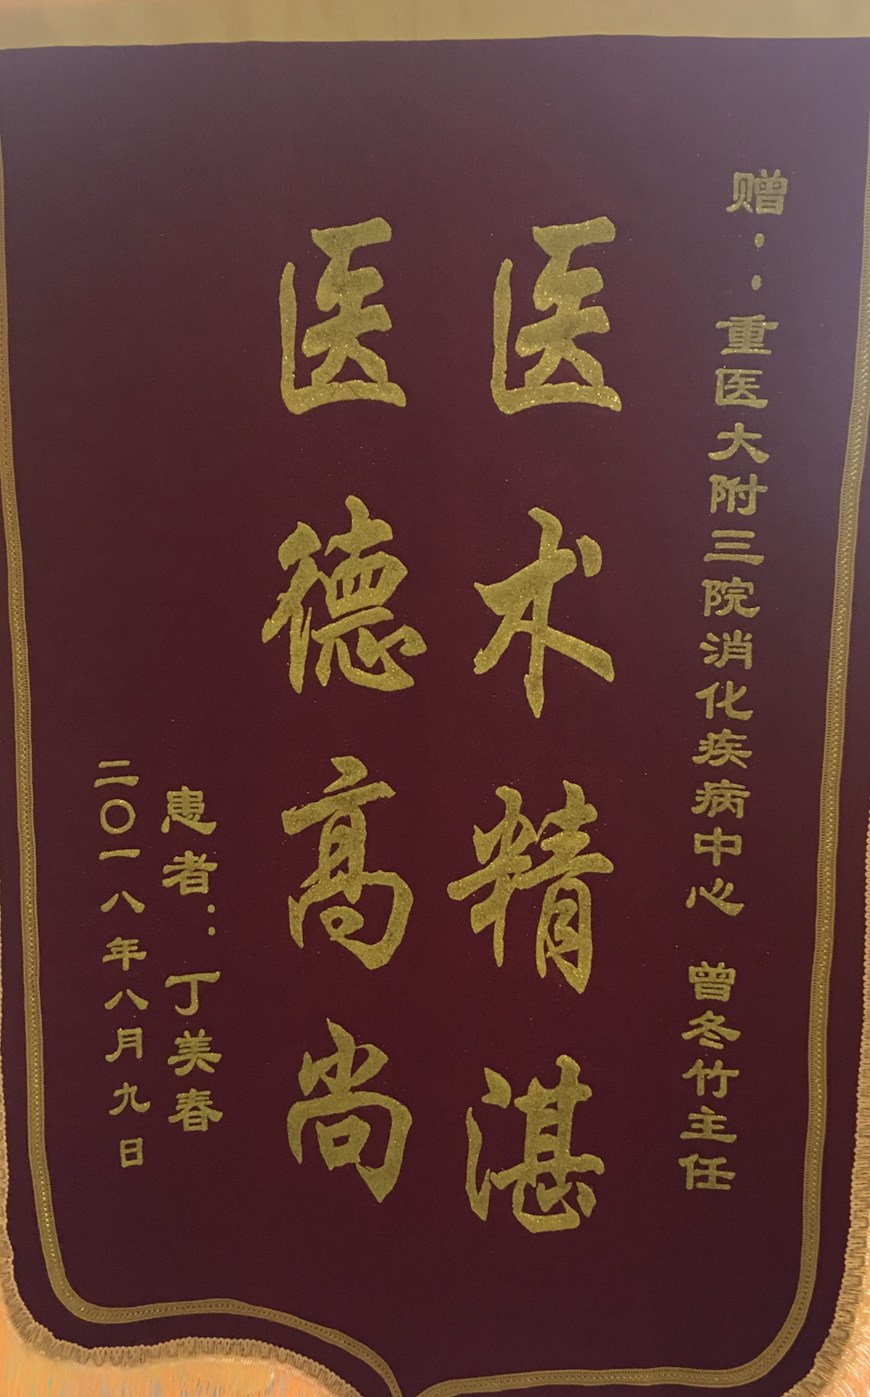 赠：重医大附三院消化疾病中心 曾冬竹主任
医术精湛
医德高尚
患者：丁美春
二〇一八年八月九日